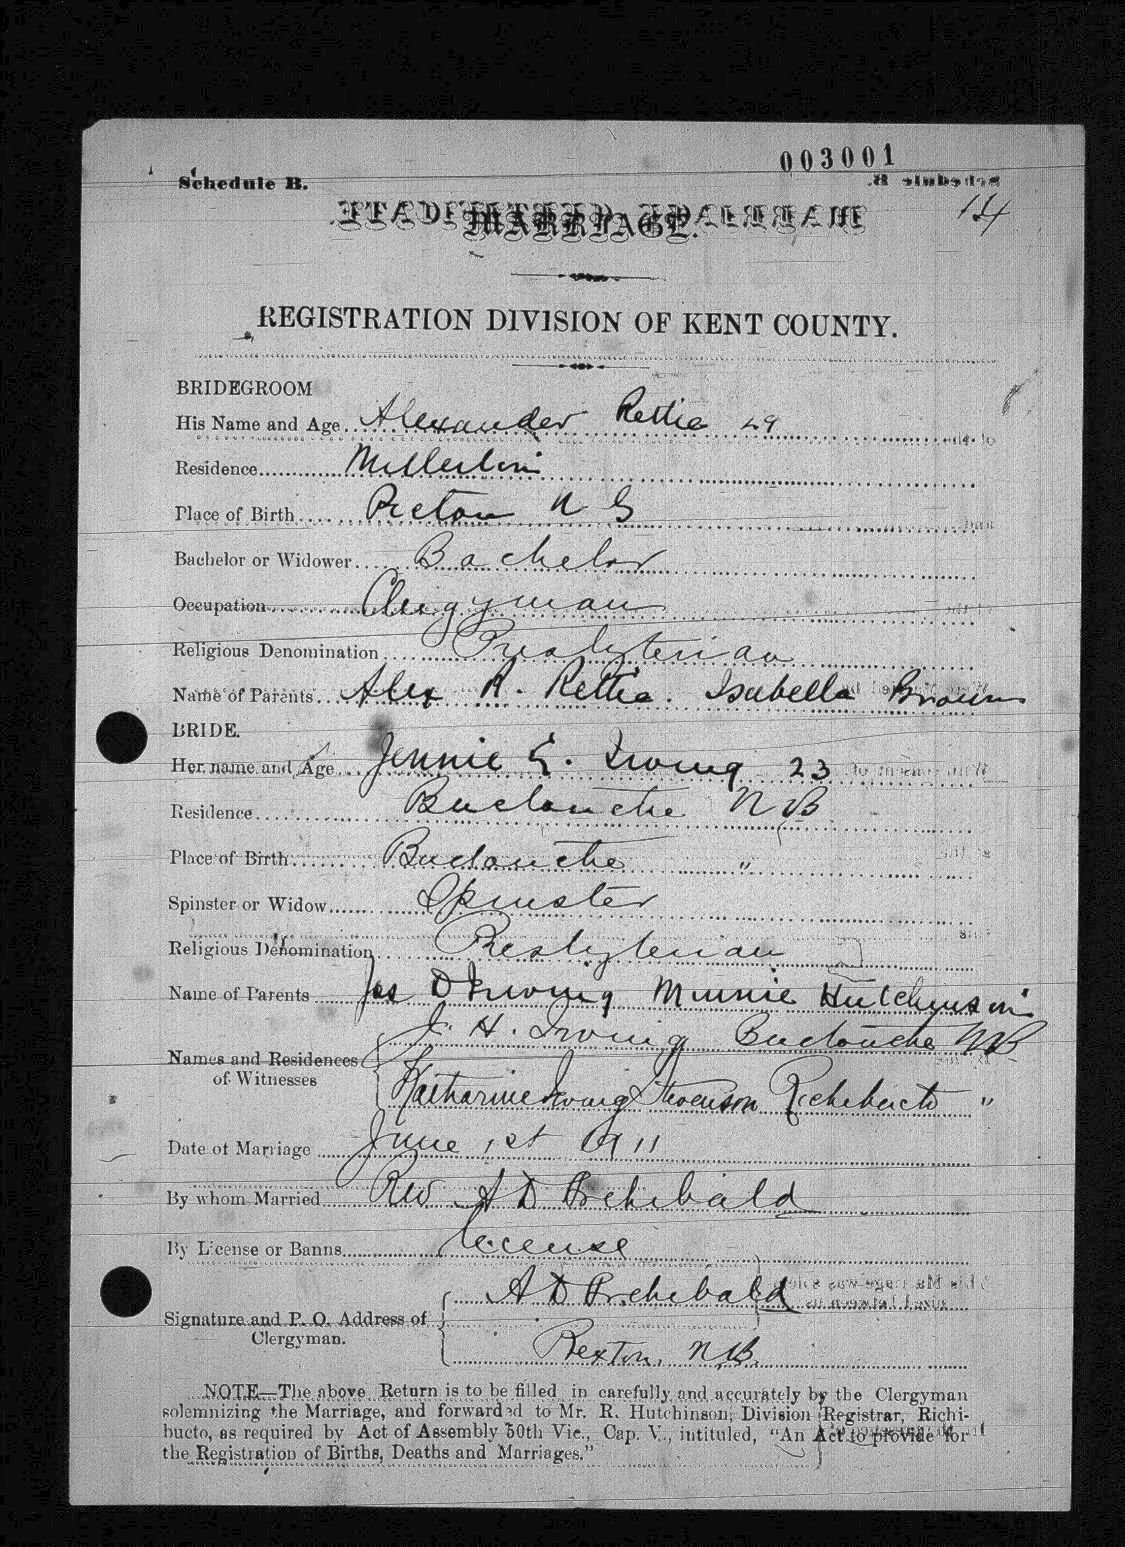 003001
Schedule B.
14
MARRIAGE.
REGISTRATION DIVISION OF KENT COUNTY.
BRIDEGROOM
His Name and Age Alexander Rettie 29
Residence Millerton
Place of Birth Pictou N S
Bachelor or Widower Bachelor
Occupation Clergyman
Religious Denomination Presbyterian
Name of Parents Alex R. Rettie. Isabella Brown
BRIDE.
Her name and Age Jennie E. Irving 23
Residence Buctouche N B
Place of Birth Buctouche "
Spinster or Widow Spinster
Religious Denomination Presbyterian
Name of Parents Jas D Irving Minnie Hutchinson
J. H. Irving Buctouche NB
Names and Residences
of Witnesses
Katharine Irving Stevenson Richibucto "
Date of Marriage June 1st 1911
By whom Married Rev A D Archibald
By License or Banns license
A D Archibald
Signature and P. O. Address of
Clergyman.
Rexton, N.B.
NOTE—The above Return is to be filled in carefully and accurately by the Clergyman
solemnizing the Marriage, and forwarded to Mr. R. Hutchinson, Division Registrar, Richi-
bucto, as required by Act of Assembly 50th Vic., Cap. V., intituled, "An Act to provide for
the Registration of Births, Deaths and Marriages."